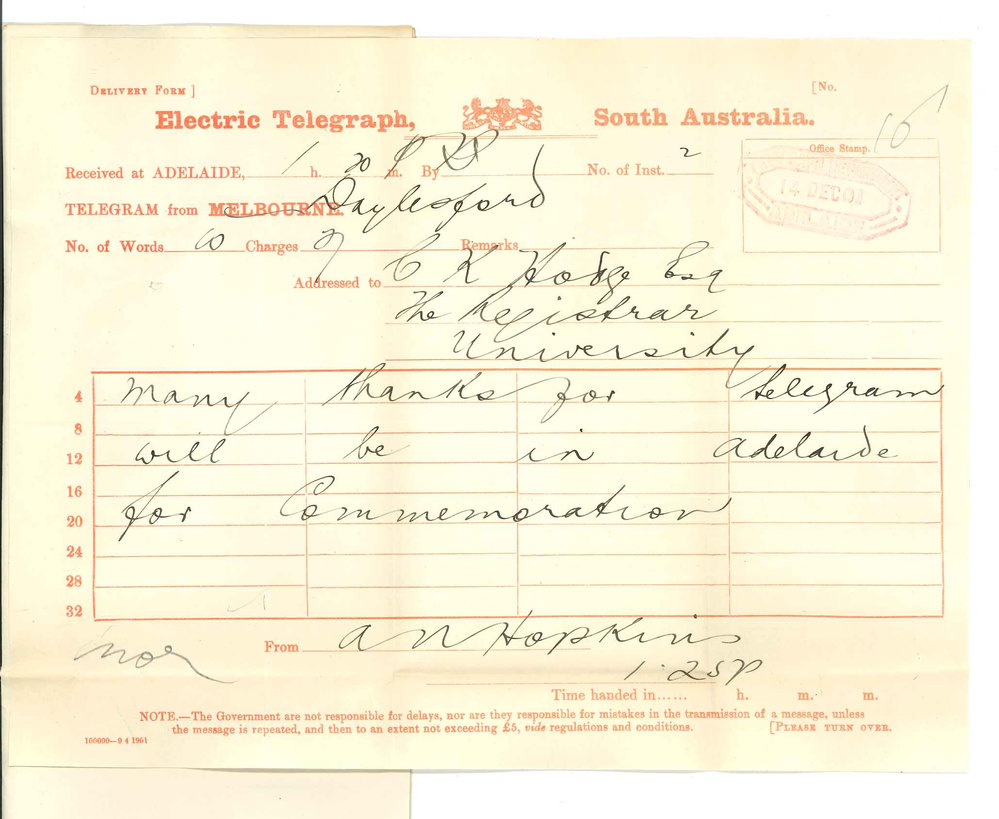 DELIVERY FORM ] [No.
Electric Telegraph, South Australia.
16
Office Stamp.
14 DEC 01
ADELAIDE
Received at ADELAIDE, 1 h. 20 P m. By No. of Inst. 2
TELEGRAM from MELBOURNE. Daylesford
No. of Words 10 Charges Remarks
Addressed to C K Hodge Esq
The Registrar
University
4 Many thanks for telegram
8
12 will be in Adelaide
16
20 for Commemoration
24
28
32
From A N Hopkins
1.25P
Time handed in...... h. m. m.
NOTE.—The Government are not responsible for delays, nor are they responsible for mistakes in the transmission of a message, unless
the message is repeated, and then to an extent not exceeding £5, vide regulations and conditions. [PLEASE TURN OVER.
100000—9 4 1901